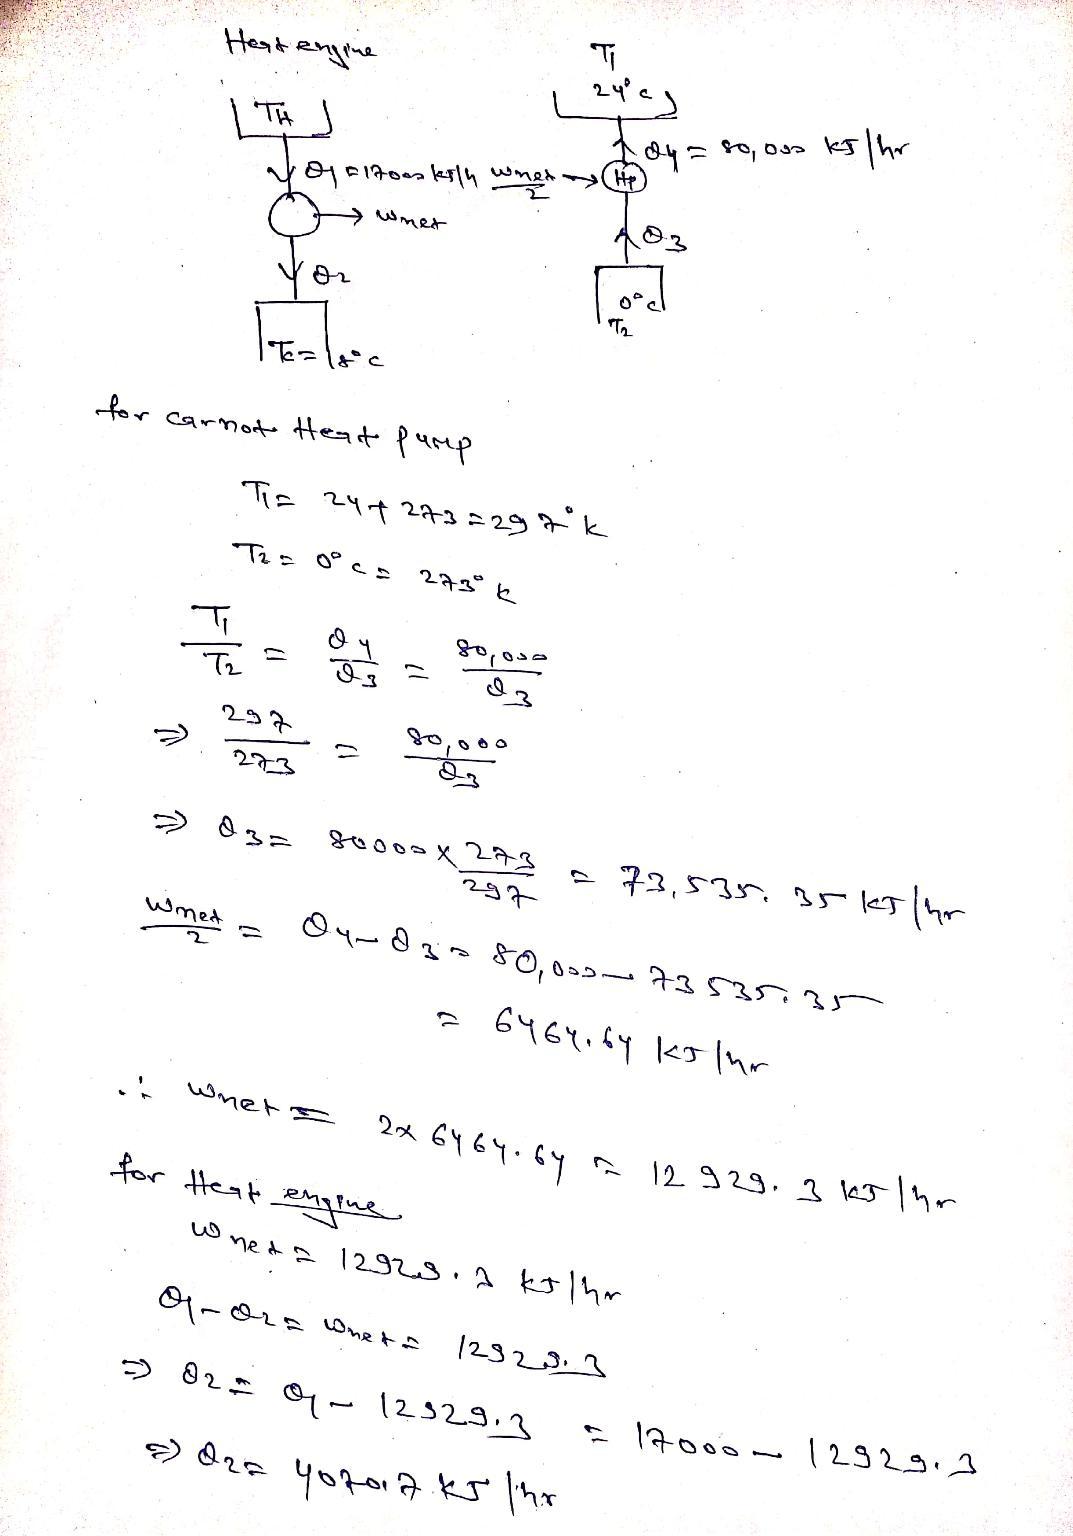 Heat engine
T1
24°c
TH
Q4 = 80,000 kJ/hr
Q1 = 17000 kJ/h Wnet/2 → HP
→ Wnet
Q3
Q2
0°c
T2
Tc = 18°c
for carnot Heat pump
T1 = 24 + 273 = 297°k
T2 = 0°c = 273°k
T1/T2 = Q4/Q3 = 80,000/Q3
⇒ 297/273 = 80,000/Q3
⇒ Q3 = 80000 x 273/297 = 73,535.35 kJ/hr
Wnet/2 = Q4 - Q3 = 80,000 - 73535.35
= 6464.64 kJ/hr
∴ Wnet = 2x 6464.64 = 12929.3 kJ/hr
for Heat engine
Wnet = 12929.3 kJ/hr
Q1 - Q2 = Wnet = 12929.3
⇒ Q2 = Q1 - 12929.3 = 17000 - 12929.3
⇒ Q2 = 4070.7 kJ/hr